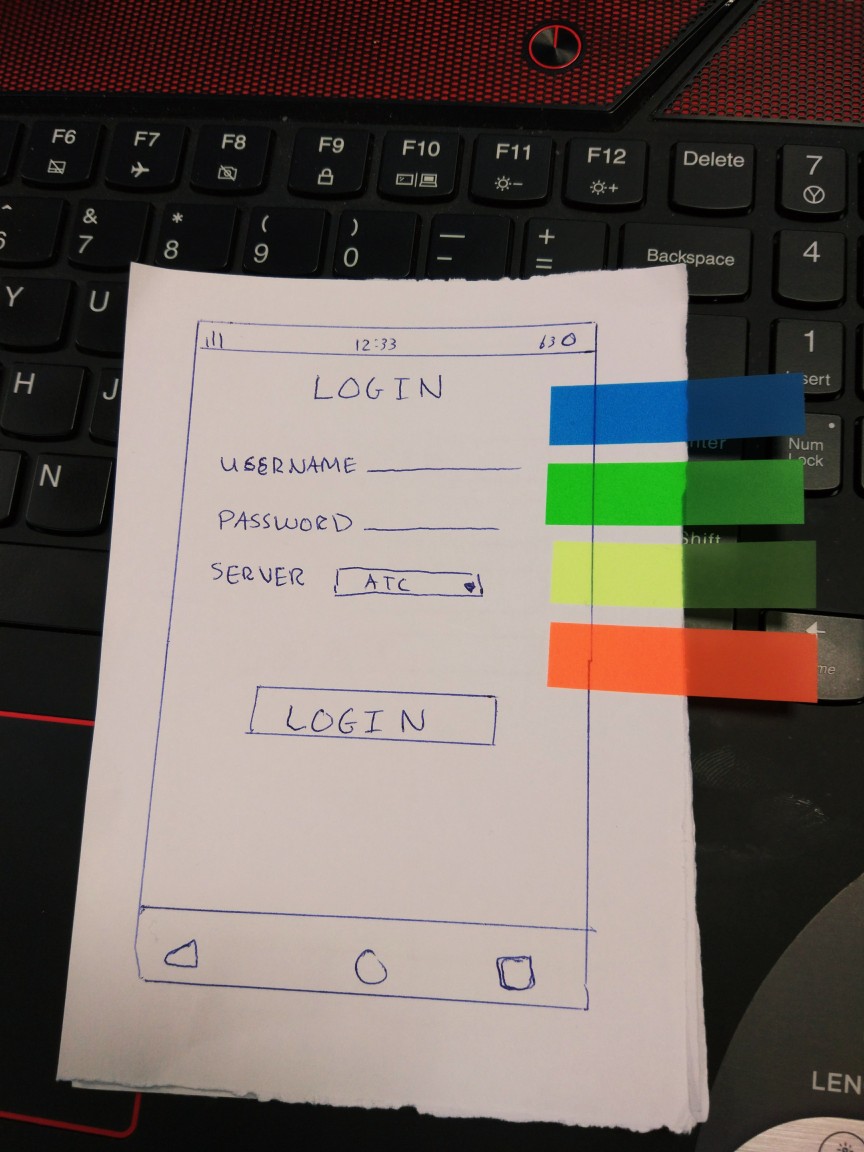 F6 F7 F8 F9 F10 F11 F12 Delete 7
^ & * ( ) — +
6 7 8 9 0 - = Backspace 4
Y U
1
H J
N
Num
Lock
Shift
ılıl 12:33 63
LOGIN
USERNAME
PASSWORD
SERVER ATC
LOGIN
LEN